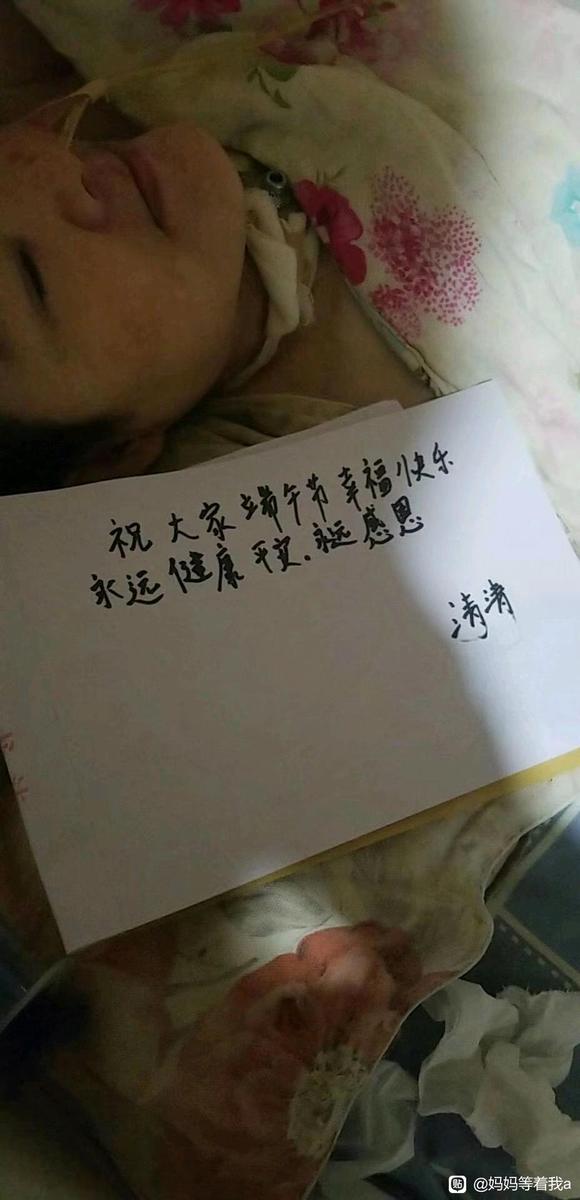 祝大家端午节幸福快乐
永远健康平安.永远感恩
清清
@妈妈等着我a